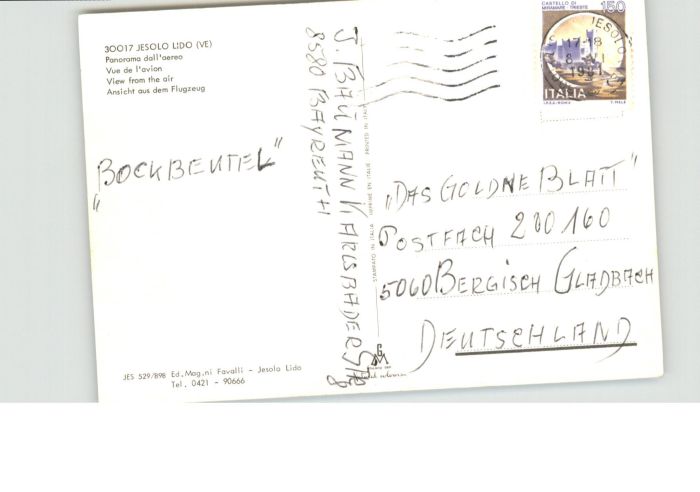 30017 JESOLO LIDO (VE)
Panorama dall'aereo
Vue de l'avion
View from the air
Ansicht aus dem Flugzeug
"BOCKBEUTEL"
J. BAUMANN KARLSBADERSTR 8
8580 BAYREUTH
STAMPATO IN ITALIA IMPRIMÉ EN ITALIE PRINTED IN ITALY
CASTELLO DI
MIRAMARE - TRIESTE
150
JESOLO
17-18
ITALIA
I.P.Z.S.-ROMA
"DAS GOLDNE BLATT"
POSTFACH 200160
5060 BERGISCH GLADBACH
DEUTSCHLAND
JES 529/898 Ed. Mag.ni Favalli - Jesolo Lido
Tel. 0421 - 90666